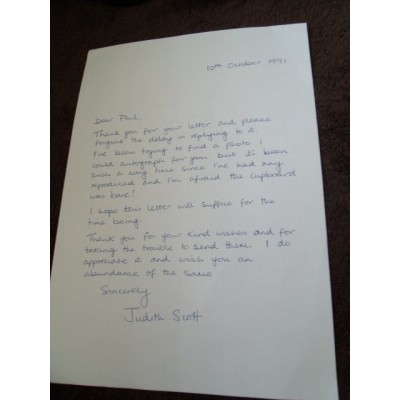 10th October 1991
Dear Phil,
Thank you for your letter and please
forgive the delay in replying to it.
I've been trying to find a photo I
could autograph for you but it's been
such a long time since I've had any
reproduced and I'm afraid the cupboard
was bare!
I hope this letter will suffice for the
time being.
Thank you for your kind wishes and for
taking the trouble to send them. I do
appreciate it and wish you an
abundance of the same
Sincerely
Judith Scott